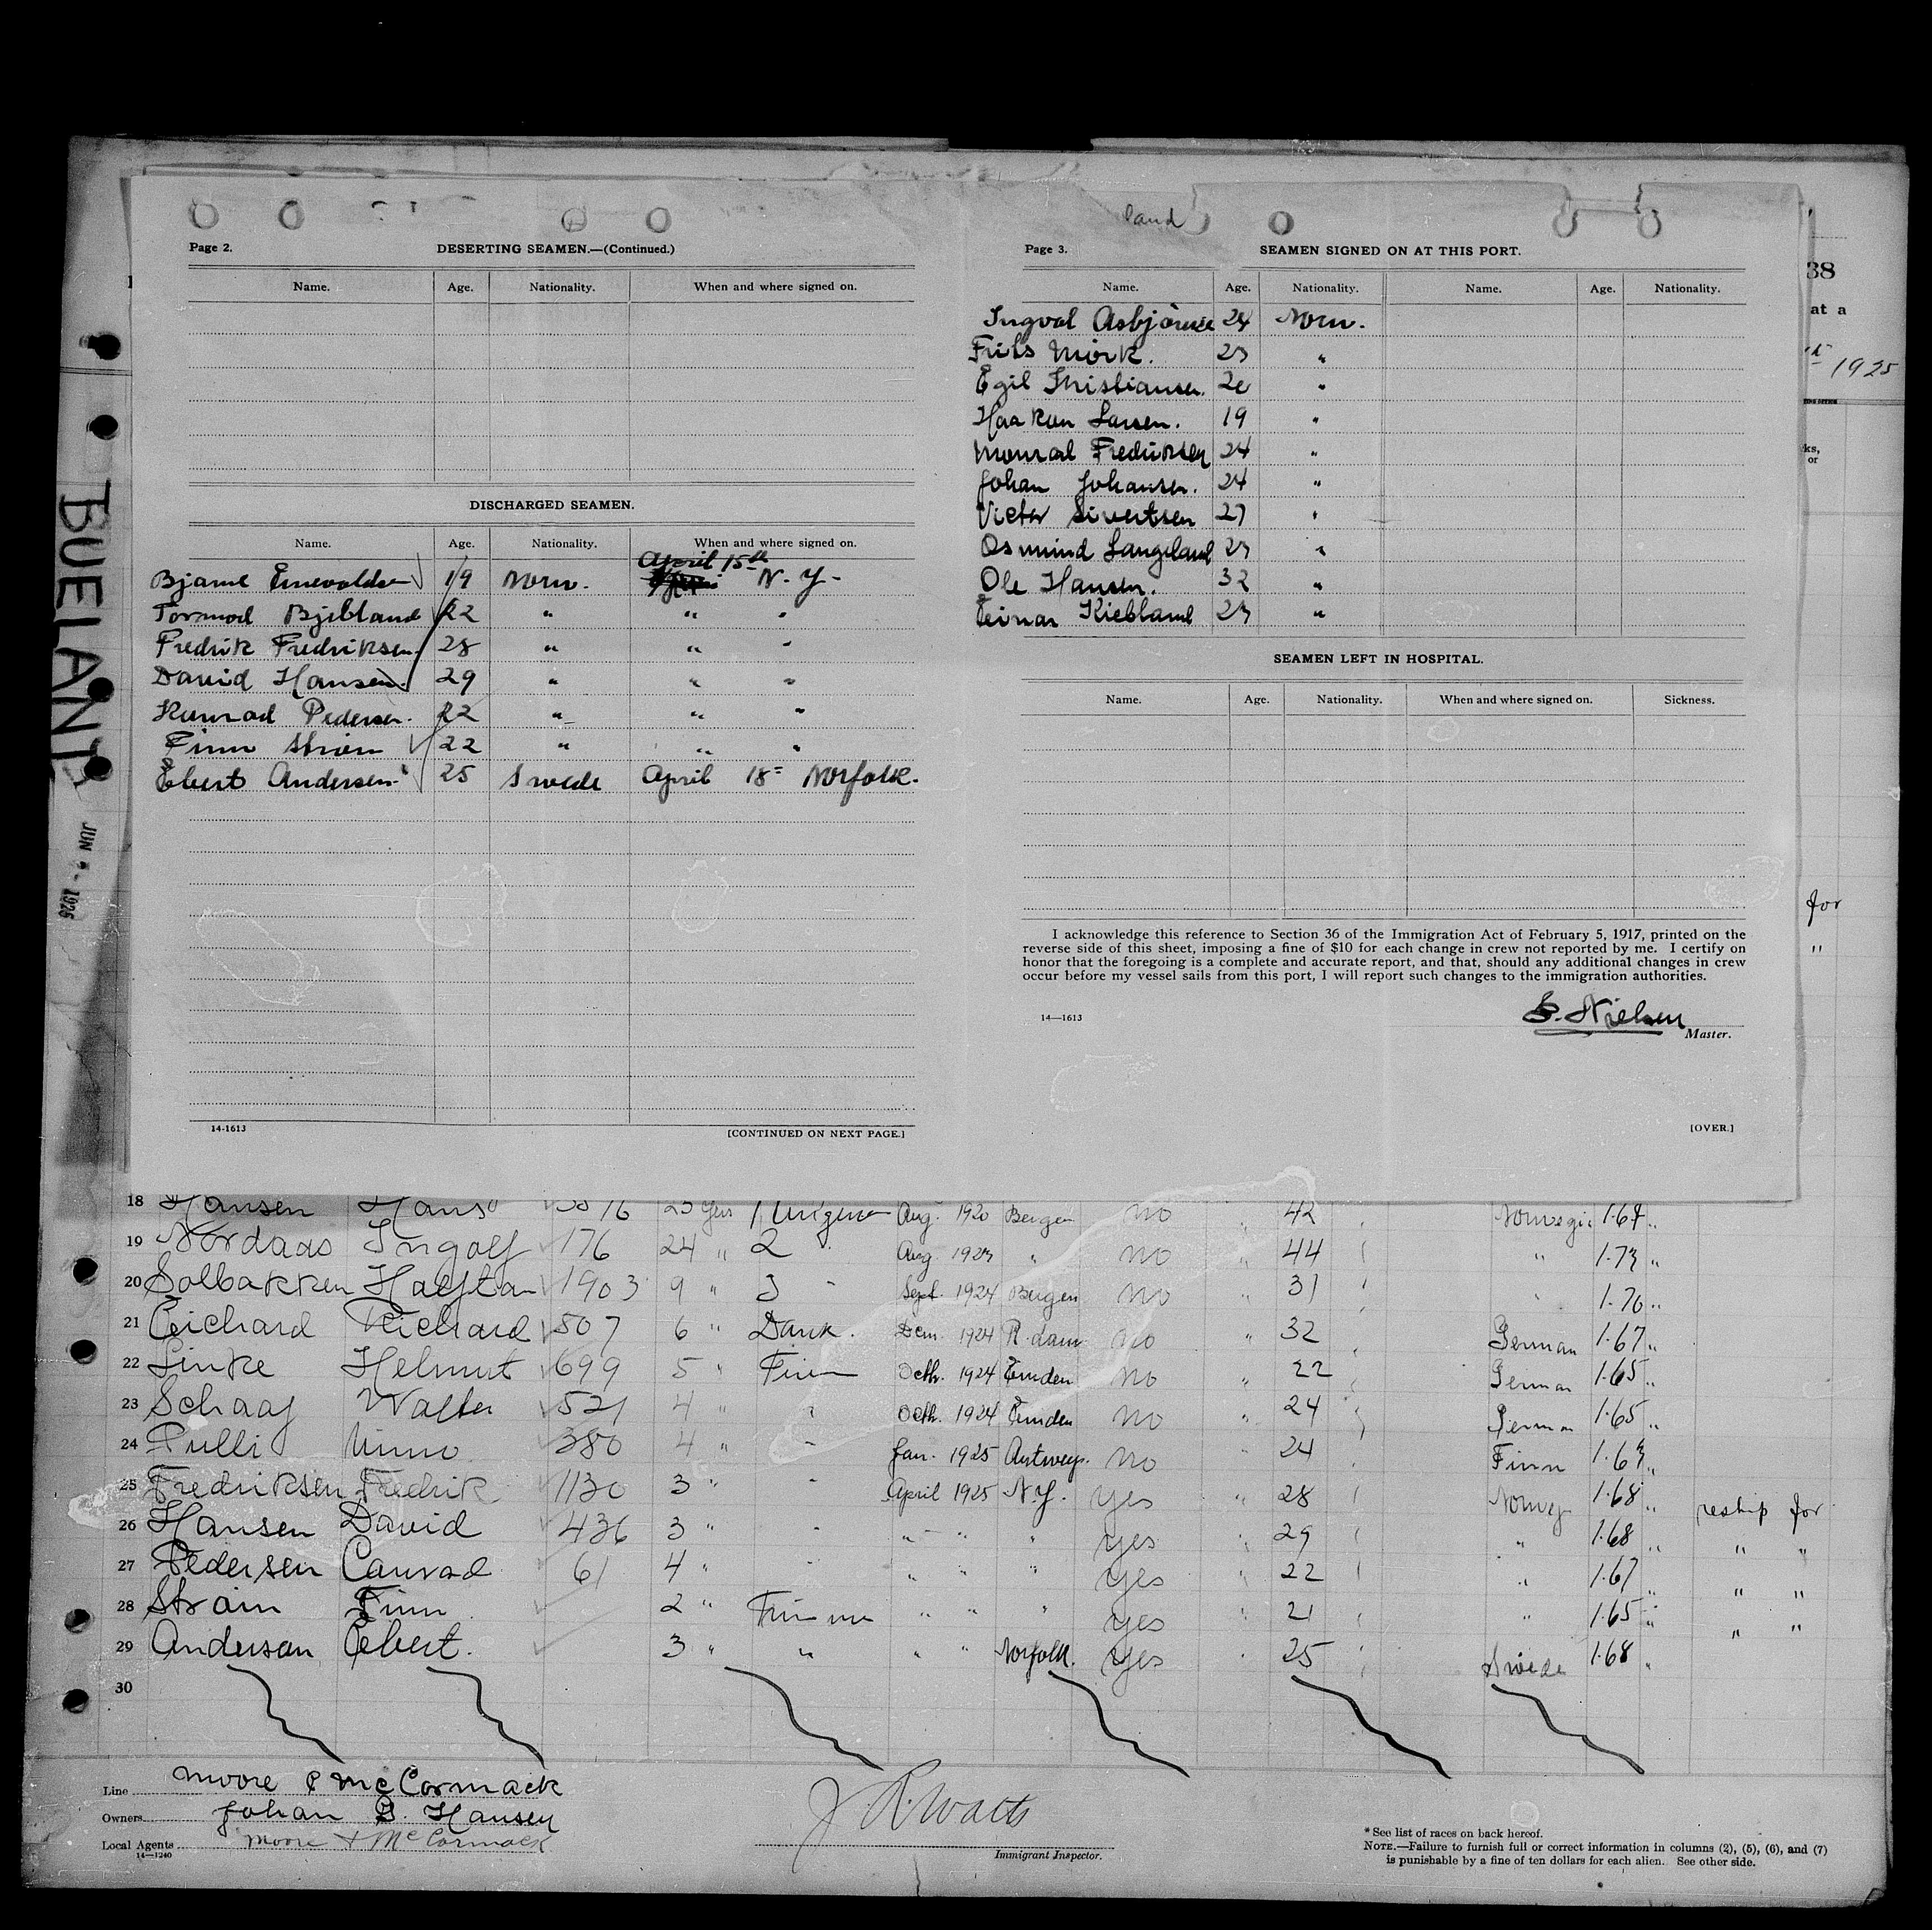 land
Page 2. DESERTING SEAMEN.—(Continued.)
Name. Age. Nationality. When and where signed on.
DISCHARGED SEAMEN.
Name. Age. Nationality. When and where signed on.
April 15th
Bjarne Enevoldsen 19 Norw. N. Y.
Tormod Bjelland 22 " " "
Fredrik Fredriksen 28 " " "
David Hansen 29 " " "
Konrad Pedersen. 22 " " "
Finn Strøm 22 " " "
Ebert Andersen 25 Swede April 18= Norfolk.
14-1613 [CONTINUED ON NEXT PAGE.]
Page 3. SEAMEN SIGNED ON AT THIS PORT.
Name. Age. Nationality. Name. Age. Nationality.
Ingval 24 Norw.
Mörk. 23 "
Egil Kristiansen. "
Haakon Larsen. 19 "
Fredriksen 24 "
Johan Johansen. 24 "
Victor Sivertsen 27 "
Osmund Langeland 23 "
Ole Hansen. 32 "
Einar Kielland 23 "
SEAMEN LEFT IN HOSPITAL.
Name. Age. Nationality. When and where signed on. Sickness.
I acknowledge this reference to Section 36 of the Immigration Act of February 5, 1917, printed on the
reverse side of this sheet, imposing a fine of $10 for each change in crew not reported by me. I certify on
honor that the foregoing is a complete and accurate report, and that, should any additional changes in crew
occur before my vessel sails from this port, I will report such changes to the immigration authorities.
14—1613
Nielsen
Master.
[OVER.]
38
at a
1925
ks,
or
for
"
BUELAND
JUN 1925
18 Hansen Hans 23 yrs Aug. 1920 Bergen no " 42 1.64 "
19 Nordaas Ingolf 176 24 " 2 " Aug. 1923 " no " 44 " 1.73 "
20 Solbakken 1903 9 " 3 " Sept. 1924 Bergen no " 31 " 1.70 "
21 Richard 507 6 " Dank. Dem. 1924 R.dam no " 32 German 1.67 "
22 Linke Helmut 699 5 " Octb. 1924 Emden no " 22 German 1.65 "
23 Schaaf Walter 521 4 " " Octb. 1924 Emden no " 24 German 1.65 "
24 Pulli 380 4 " " Jan. 1925 Antwerp. no " 24 Finn 1.63 "
25 Fredriksen Fredrik 1130 3 " " April 1925 N.Y. yes " 28 1.68 " reship for
26 Hansen David 436 3 " " " " " yes " 29 " 1.68 " " "
27 Pedersen Conrad 61 4 " " " " " yes " 22 " 1.67 " " "
28 Finn 2 " " " " yes " 21 " 1.65 " " "
29 Anderson Ebert. 3 " " " " Norfolk. yes " 25 Swede 1.68 "
30
Line Moore & McCormack
Owners Johan G. Hansen
Local Agents Moore & McCormack
14—1240
J R. Watts
Immigrant Inspector.
* See list of races on back hereof.
NOTE.—Failure to furnish full or correct information in columns (2), (5), (6), and (7)
is punishable by a fine of ten dollars for each alien. See other side.